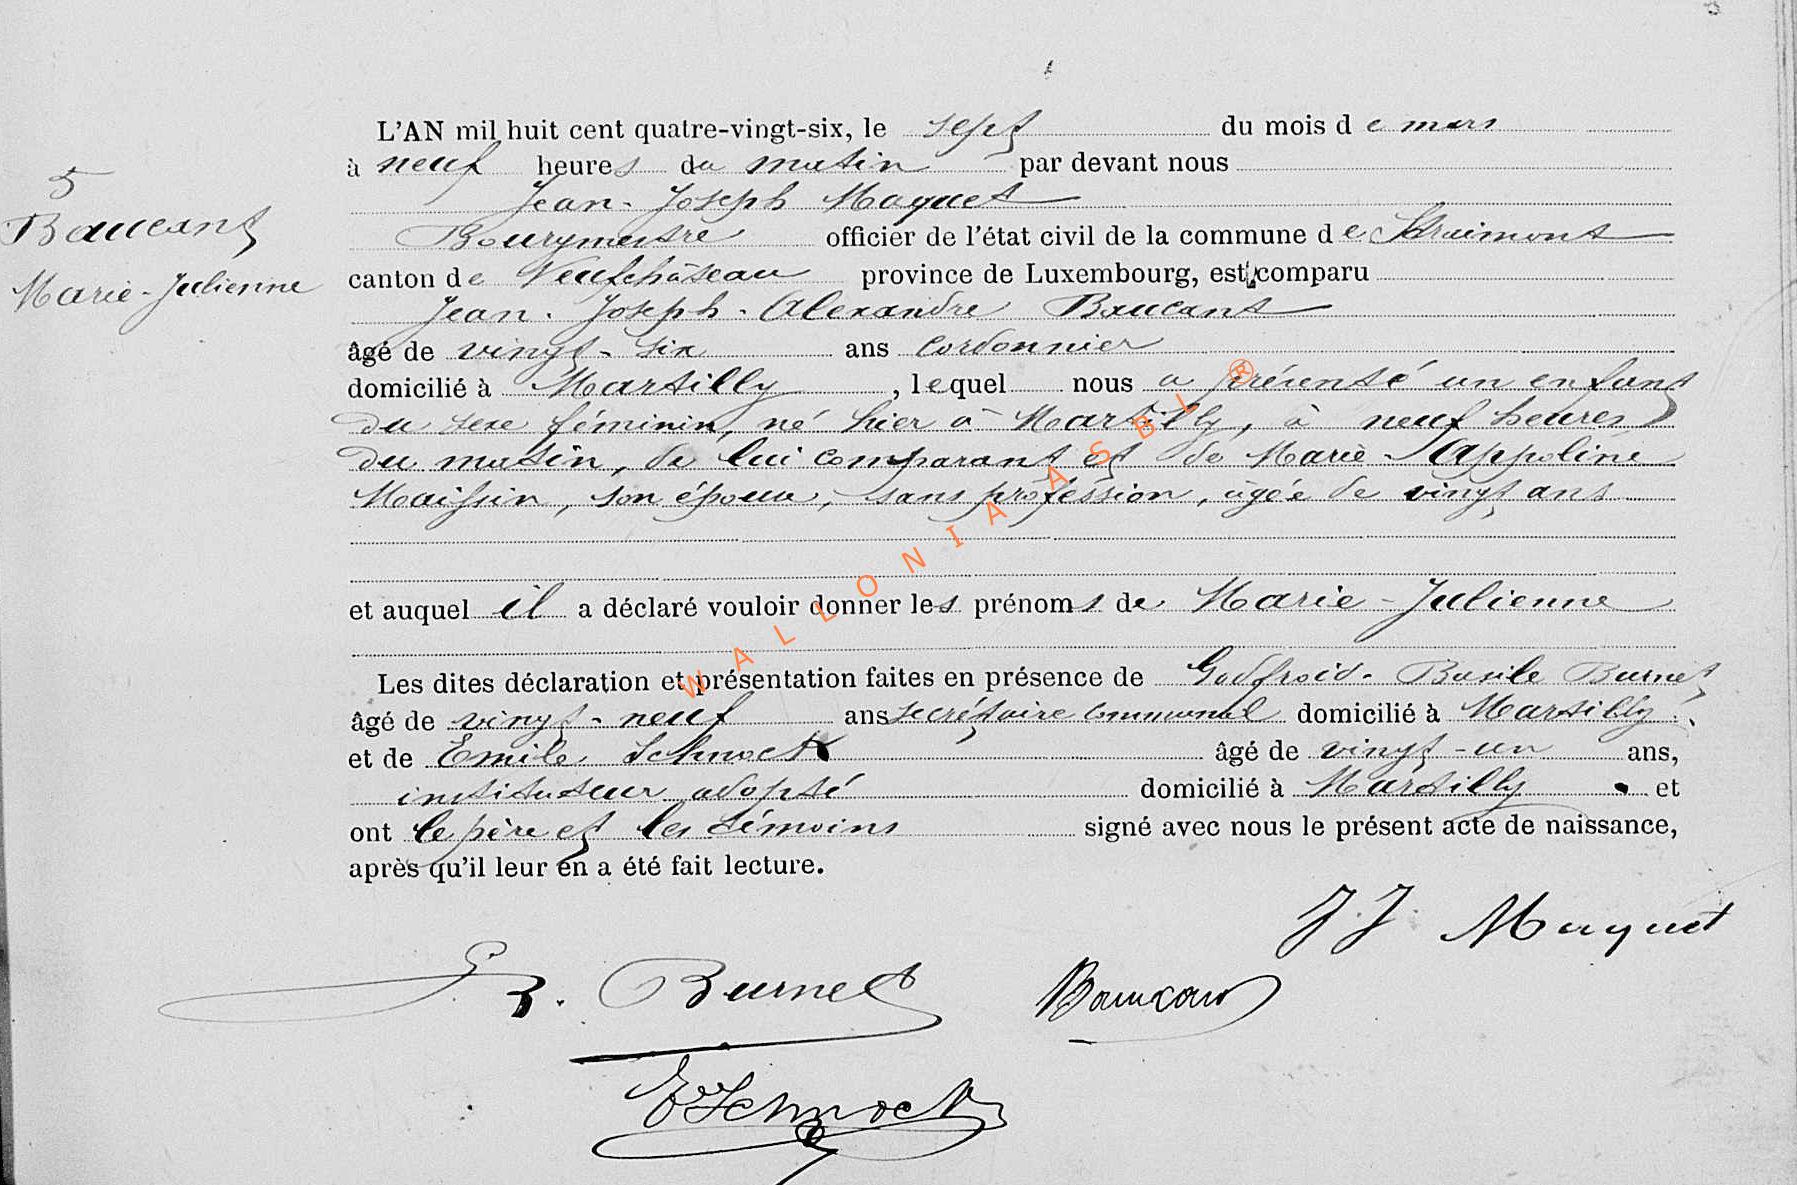 5
Baucant
Marie-Julienne
L'AN mil huit cent quatre-vingt-six, le sept du mois de mars
à neuf heures du matin par devant nous
Jean-Joseph Maquet
Bourgmestre officier de l'état civil de la commune de Straimont
canton de Neufchâteau province de Luxembourg, est comparu
Jean-Joseph-Alexandre Baucant
âgé de vingt-six ans cordonnier
domicilié à Martilly, lequel nous a présenté un enfant
du sexe féminin, né hier à Martilly, à neuf heures
du matin, de lui comparant et de Marie-Appoline
Maissin, son épouse, sans profession, âgée de vingt ans
et auquel il a déclaré vouloir donner les prénoms de Marie-Julienne
Les dites déclaration et présentation faites en présence de Godfroid-Basile Burnet
âgé de vingt-neuf ans secrétaire communal domicilié à Martilly
et de Emile Schnock âgé de vingt-un ans,
instituteur adopté domicilié à Martilly et
ont le père et les témoins signé avec nous le présent acte de naissance,
après qu'il leur en a été fait lecture.
J. J. Maquet
G. B. Burnet
E Schnock
WALLONIA ASBL ®